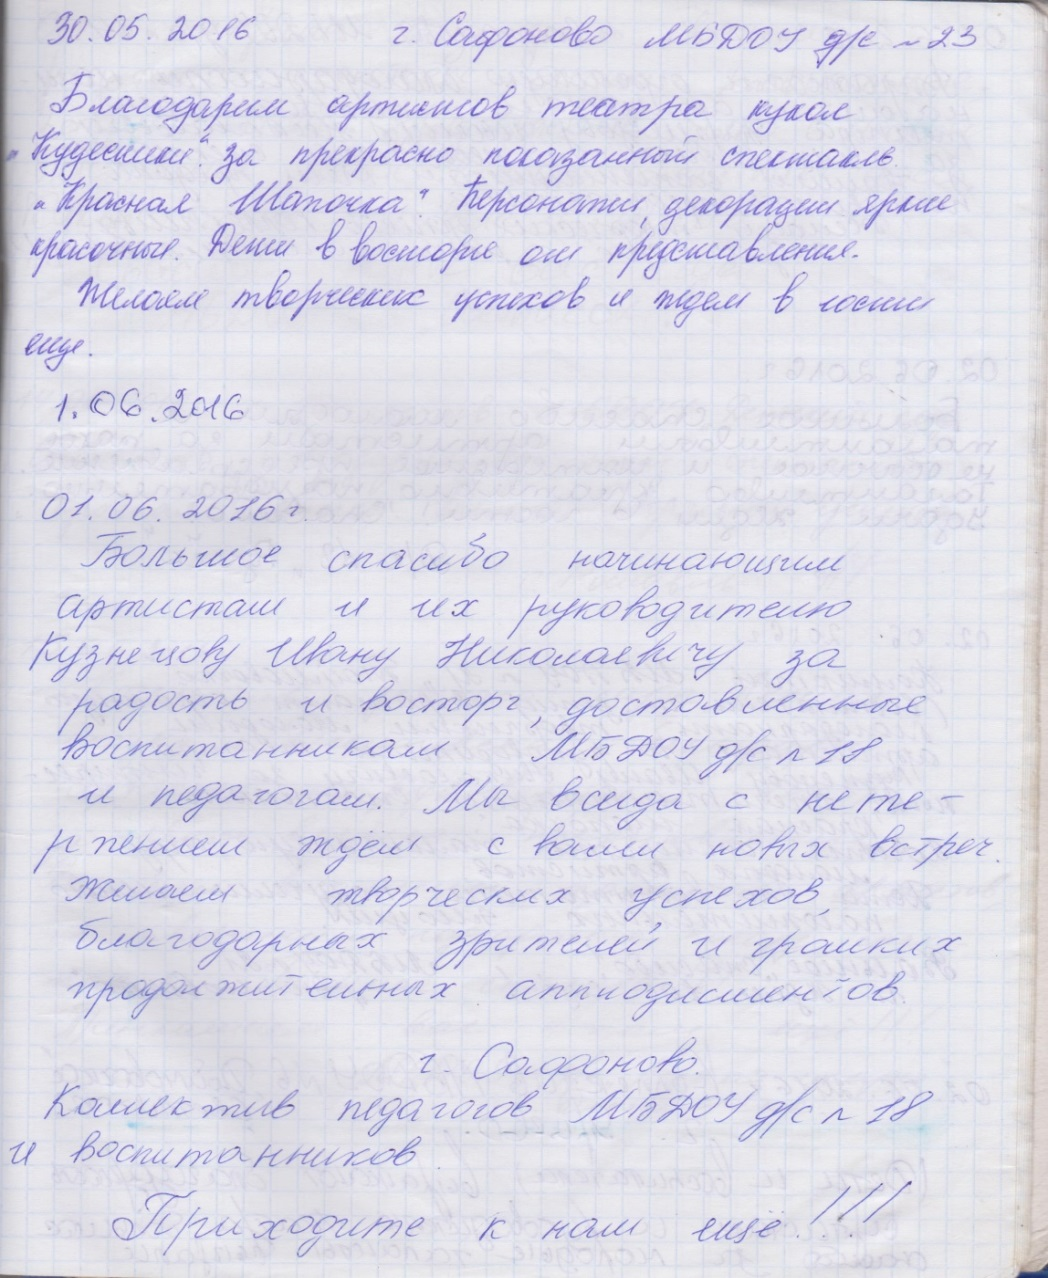 30.05.2016 г. Сафоново МБДОУ д/с №23
Благодарим артистов театра кукол
"Кудесники" за прекрасно показанный спектакль
"Красная Шапочка". Персонажи, декорации яркие
красочные. Дети в восторге от представления.
Желаем творческих успехов и ждем в гости
еще.
1.06.2016
01.06.2016г.
Большое спасибо начинающим
артистам и их руководителю
Кузнецову Ивану Николаевичу за
радость и восторг, доставленные
воспитанникам МБДОУ д/с №18
и педагогам. Мы всегда с нете-
рпением ждём с вами новых встреч.
Желаем творческих успехов
благодарных зрителей и громких
продолжительных апплодисментов.
г. Сафоново.
Коллектив педагогов МБДОУ д/с №18
и воспитанников.
Приходите к нам ещё!!!